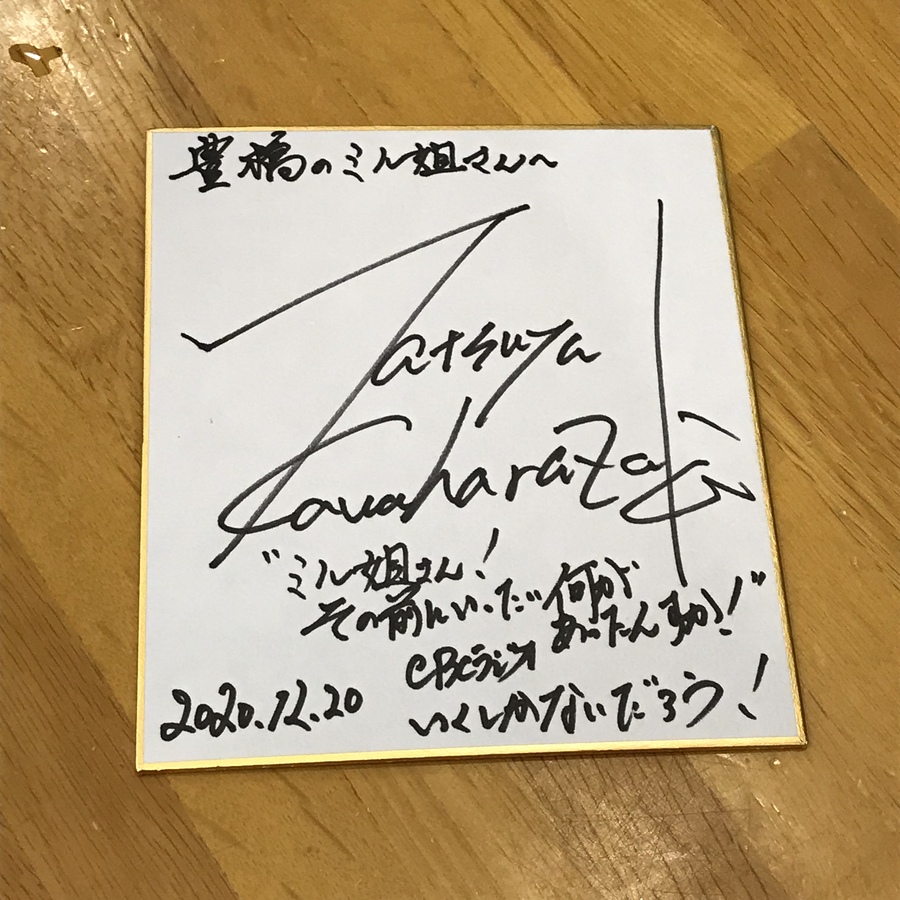 豊橋のミル姐さんへ
Tatsuya
Kawaharazaki
"ミル姐さん!
その前にいったい何が
あったんすか!"
CBCラジオ
いくしかないだろう!
2020.12.20